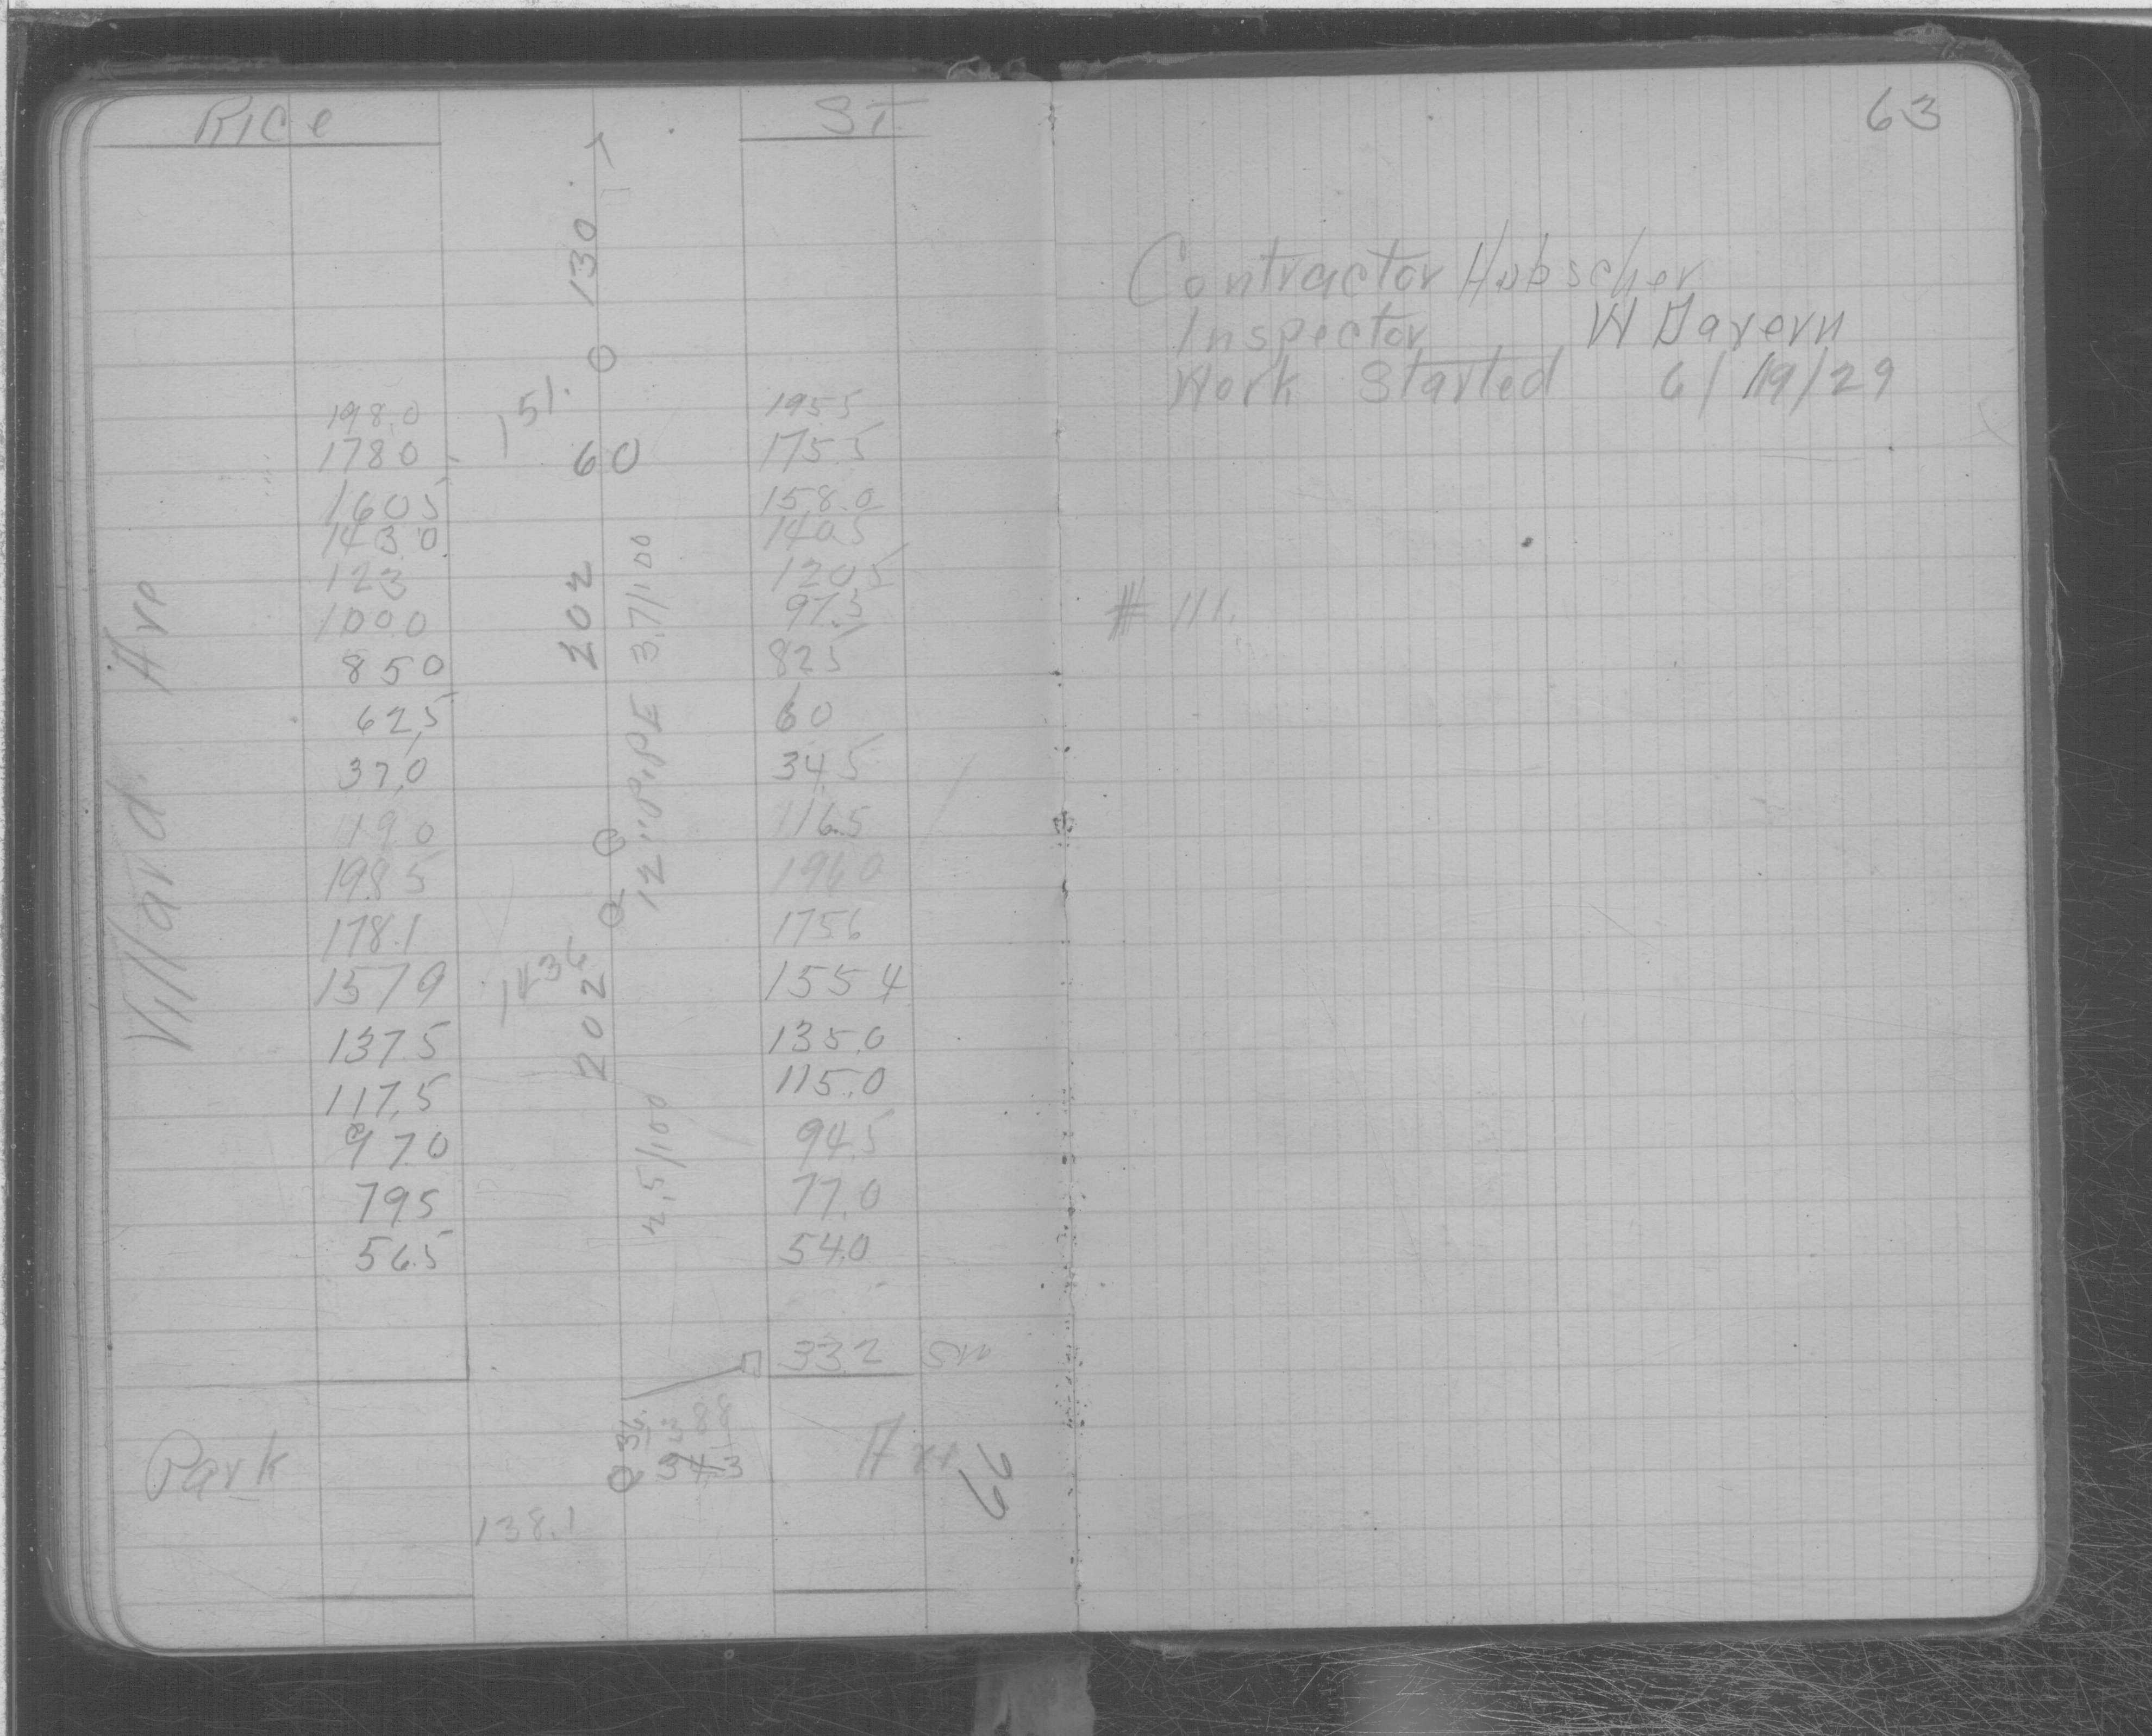 Rice ST.
130
198.0 151. 195 5
178 0 60 175.5
160 5 158.0
143 0 140 5
123 120.5
100 0 202 97.5
85 0 3.7/100 82 5
62.5 60
37.0 34.5
Villard Ave
12" PIPE
119 0 116.5
198 5 196 0
178.1 175 6
157 9 202 155 4
137.5 135.0
117.5 115.0
97.0 94.5
2.5/100
79 5 77.0
56.5 54.0
33 2 SW
36. 3 88
Park 34.3 Ave
66
138.1
63
Contractor Hubscher
Inspector W Davern
Work Started 6/19/29
# 111.